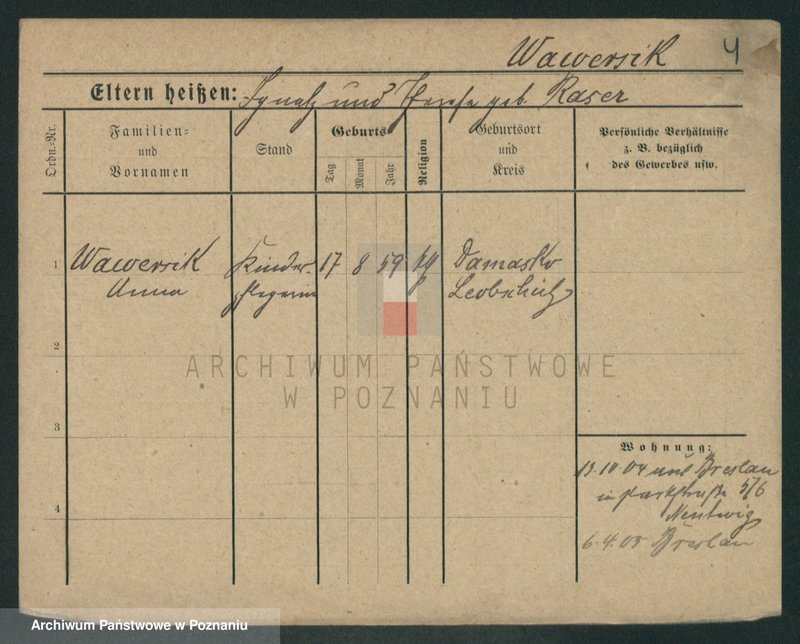 Wawersik 4
Eltern heißen: Ignatz und geb. Raser
Ordn.-Nr.
Familien-
und
Vornamen
Stand
Geburts
Tag
Monat
Jahr
Religion
Geburtsort
und
Kreis
Persönliche Verhältnisse
z. B. bezüglich
des Gewerbes usw.
1 Wawersik Kinder- 17 8 59 Damasko
Anna pflegerin Leobschütz
2
ARCHIWUM PAŃSTWOWE
W POZNANIU
3
Wohnung:
13.10.04 aus Breslau
in Parkstraße 5/6
4
Nentwig
6.4.05 Breslau
Archiwum Państwowe w Poznaniu